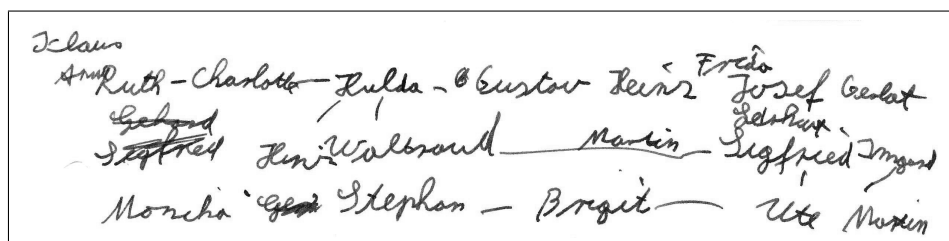 Klaus
Anna Ruth-Charlotte-Hulda-Gustav Heinz Frieda Josef
Gehard
Sigfried Heinz Waltraud Martin Sigfried Irmgard
Monika Stephan - Brigit - Ute Martin